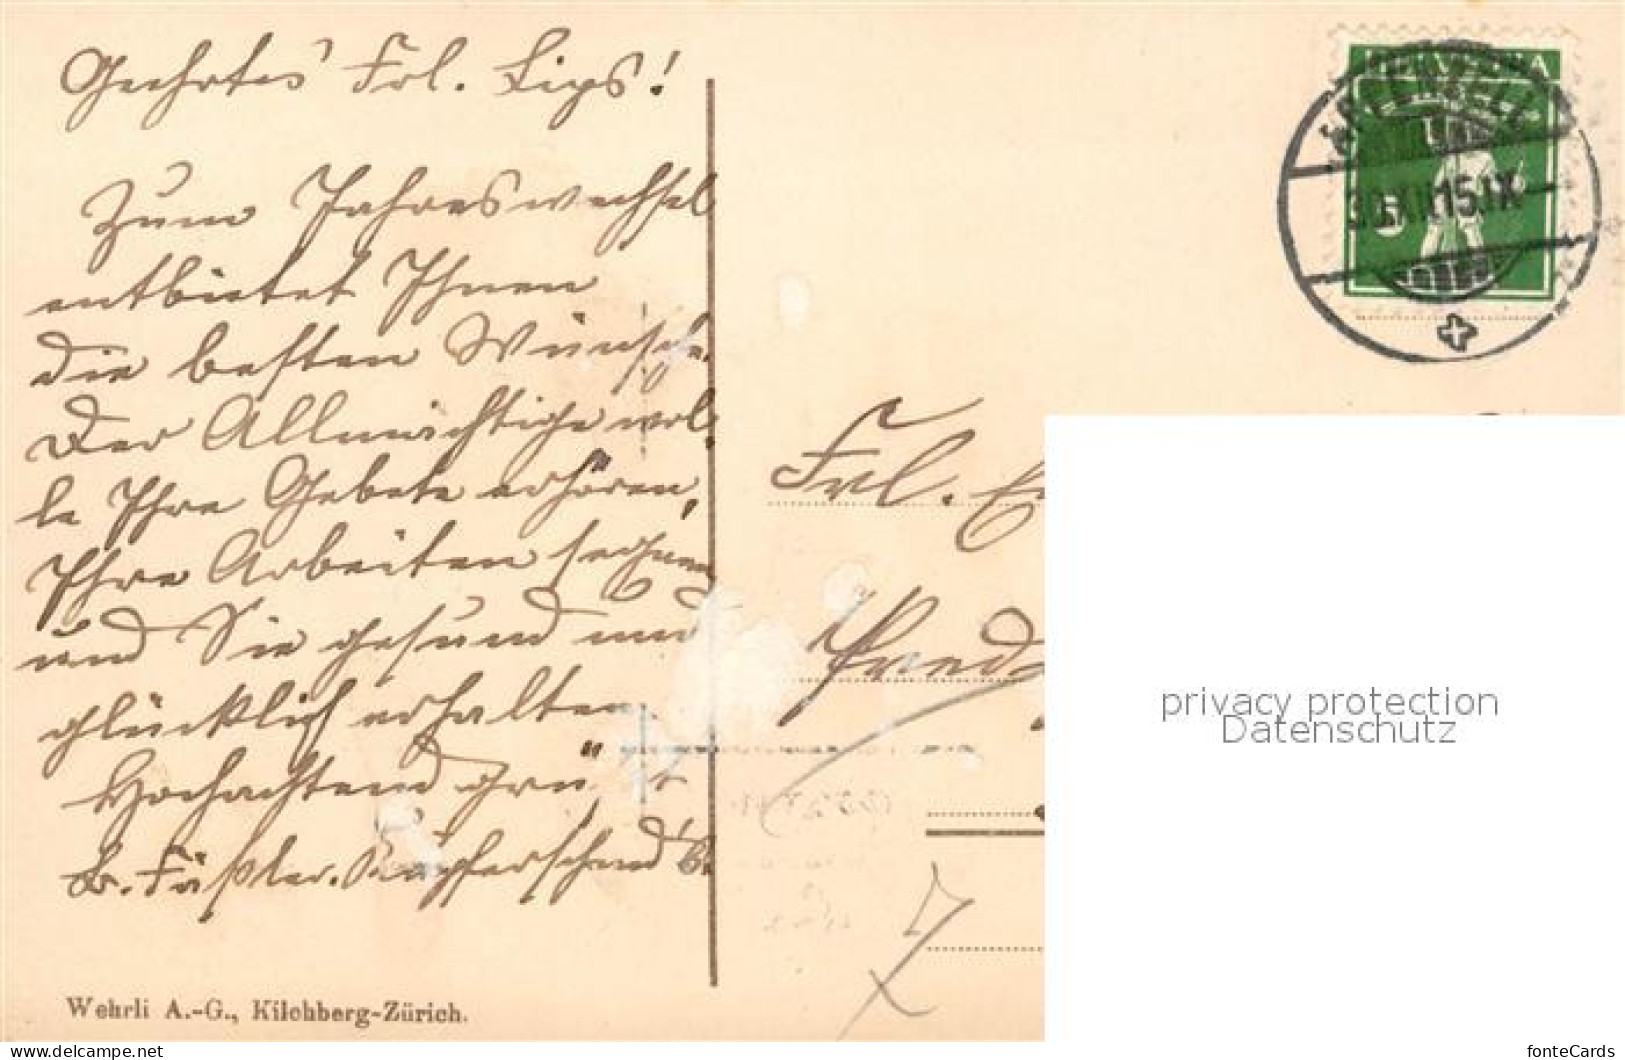 Geehrtes Frl. Lips!
Zum Jahreswechsel
entbietet Ihnen
die besten Wünsche.
Der Allmächtige wol-
le Ihre Gebete erhören,
Ihre Arbeiten segnen
und Sie gesund und
glücklich erhalten.
Hochachtend grüßt
B. Fäßler.
Wehrli A.-G., Kilchberg-Zürich.
HELVETIA
APPENZELL
30.XII.15.IX
5
Frl. E
privacy protection
Datenschutz
https://www.delcampe.net
fonteCards